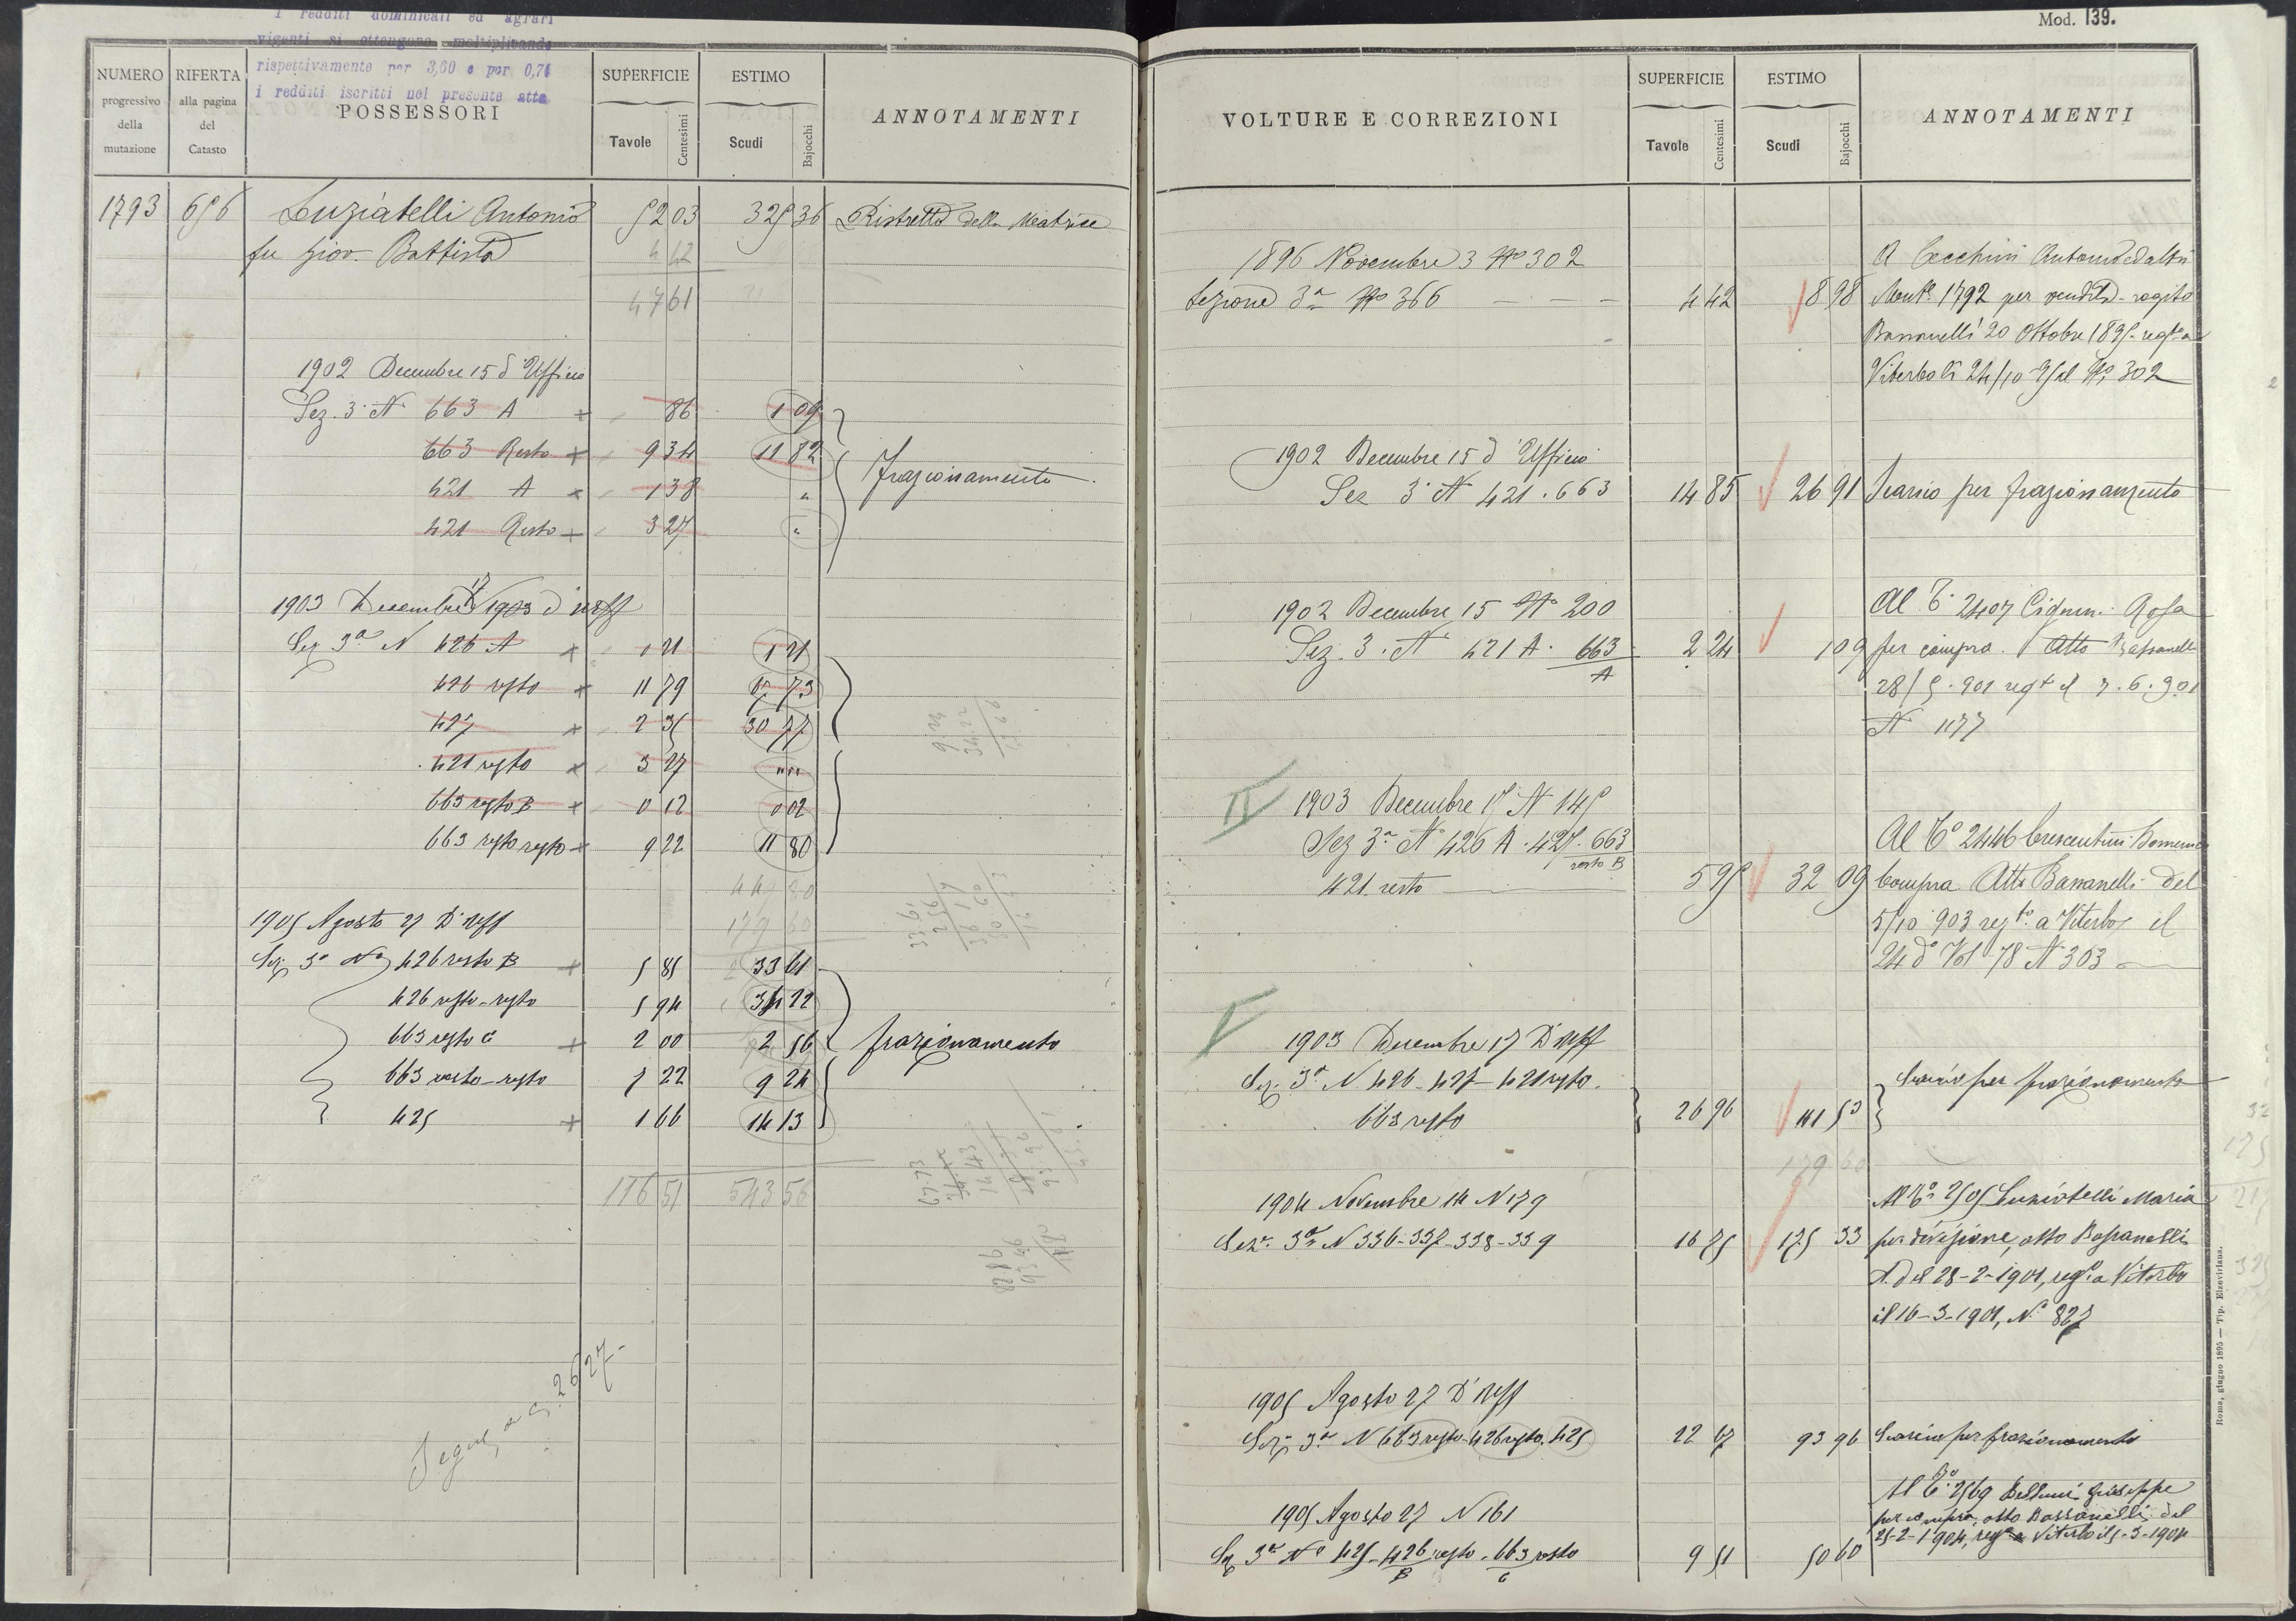 I redditi dominicali ed agrari
vigenti si ottengono moltiplicando
rispettivamente per 3,60 e per 0,71
i redditi iscritti nel presente atto
NUMERO progressivo della mutazione
RIFERTA alla pagina del Catasto
POSSESSORI
SUPERFICIE Tavole Centesimi
ESTIMO Scudi Bajocchi
ANNOTAMENTI
1793 656 Luziatelli Antonio 52 03 325 36 Ristretto della Matrice
fu Giov. Battista 4 42
47 61
1902 Decembre 15 d'Ufficio
Sez. 3ª N 663 A + 86 1 09
663 Resto + 9 34 11 82
421 A x 1 38 "
frazionamento
421 Resto + 3 27 "
1903 Decembre 17 1903 d'uff
Sez 3ª N 426 A x 0 21 1 21
426 resto x 11 79 67 73
427 x 2 35 30 77
421 resto x 3 27 " "
663 resto B x 0 12 0 02
663 resto resto x 9 22 11 80
179 60
1905 Agosto 27 D'uff
Sez 3ª Nº 426 resto B + 5 85 33 61
426 resto-resto 5 94 34 22
663 resto C + 2 00 2 56 frazionamento
663 resto-resto 7 22 9 24
425 + 1 66 14 13
116 51 543 56
Segue a C. 2627-
Mod. 139.
VOLTURE E CORREZIONI
SUPERFICIE Tavole Centesimi
ESTIMO Scudi Bajocchi
ANNOTAMENTI
1896 Novembre 3 Nº 302
Sezione 3ª Nº 366 - - - 4 42 8 98
A Cecchini Antonio ed altri
Mutª 1792 per vendita - rogito
Bassanelli 20 Ottobre 1895 - regtº a
Viterbo li 24/10 95 al Nº 302
1902 Decembre 15 d'Ufficio
Sez 3ª N 421 . 663 14 85 26 91 Scarico per frazionamento
1902 Decembre 15 Nº 200
Sez. 3. N 421 A . 663 A 2 24 1 09
Al Cº 2407 Rosa
per compra. Atto Bassanelli
28/5.901 regt il 7.6.901
N 1177
IV 1903 Decembre 17 N 145
Sez 3ª Nº 426 A . 427 . 663 resto B
421 resto 5 95 32 09
Al Cº 2446 Crescentini Domenico
Compra Atto Bassanelli del
5/10 903 regtº a Viterbo il
24 dº Vol 78 N 303
V 1903 Decembre 17 D'Uff
Sez. 3ª N 426 - 427 - 421 resto.
663 resto 26 96 111 53
Scarico per frazionamento
179 60
1904 Novembre 14 N 179
Sezº 3ª N 336-337-338-339 16 75 175 33
Al Cº 2505 Luziatelli Maria
per divisione, atto Bassanelli
A. del 28-2-1901, regº a Viterbo
il 16-3-1901, N. 827
1905 Agosto 27 D'Uff
Sez. 3ª N 663 resto-426 resto, 425 22 67 93 96 Scarico per frazionamento
1905 Agosto 27 N 161
Sez 3ª Nº 425-426 B resto - 663 C resto 9 51 50 60
Al Cº 2569 Giuseppe
per compra, atto Bassanelli del
25-2-1904, regº a Viterbo il 5-3-1904
Roma, giugno 1895 — Tip. Elzeviriana.